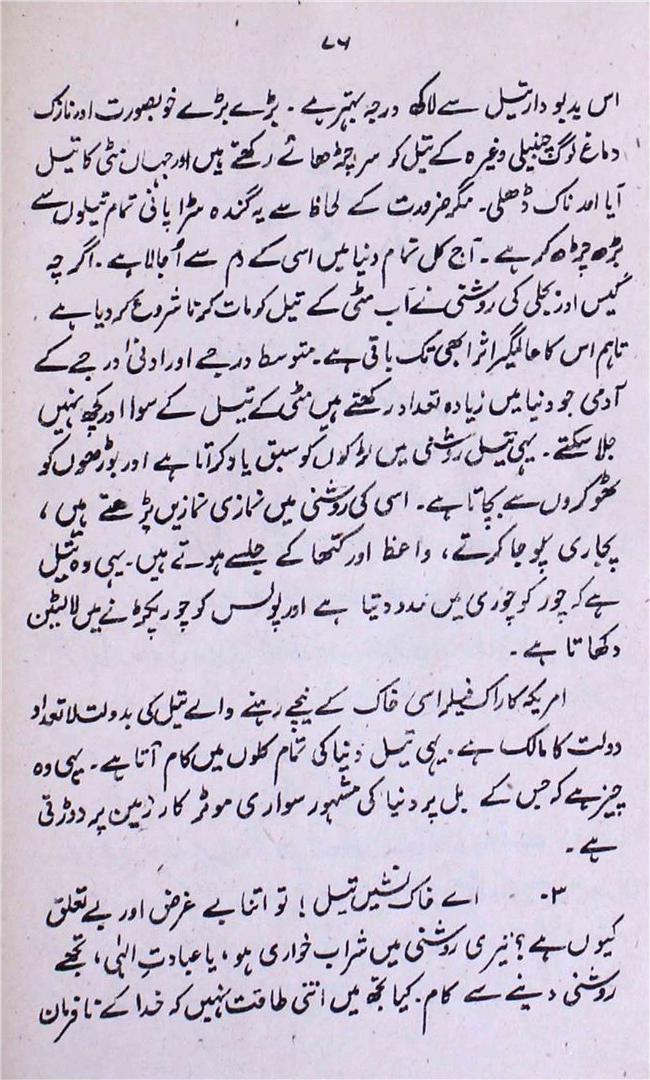 ۷۶
اس بدبو دار تیل سے لاکھ درجہ بہتر ہے ۔ بڑے بڑے خوبصورت اور نازک
دماغ لوگ چنبیلی وغیرہ کے تیل کو سر چڑھائے رکھتے ہیں اور جہاں مٹی کا تیل
آیا اور ناک ڈھلی ۔ مگر ضرورت کے لحاظ سے یہ گندہ سڑا پانی تمام تیلوں سے
بڑھ چڑھ کر ہے ۔ آج کل تمام دنیا میں اسی کے دم سے اُجالا ہے ۔ اگر چہ
گیس اور بجلی کی روشنی نے اب مٹی کے تیل کو مات کرنا شروع کر دیا ہے
تاہم اس کا عالمگیر اثر ابھی تک باقی ہے ۔ متوسط درجے اور ادنیٰ درجے کے
آدمی جو دنیا میں زیادہ تعداد رکھتے ہیں مٹی کے تیل کے سوا اور کچھ نہیں
جلا سکتے ۔ یہی تیل روشنی میں لڑکوں کو سبق یاد کراتا ہے اور بوڑھوں کو
ٹھوکروں سے بچاتا ہے ۔ اسی کی روشنی میں نمازی نمازیں پڑھتے ہیں ،
پجاری پوجا کرتے ، واعظ اور کتھا کے جلسے ہوتے ہیں ۔ یہی وہ تیل
ہے کہ چور کو چوری میں مدد دیتا ہے اور پولس کو چور پکڑنے میں لالٹین
دکھاتا ہے ۔
امریکہ کا راک فیلر اسی خاک کے نیچے رہنے والے تیل کی بدولت لا تعداد
دولت کا مالک ہے ۔ یہی تیل دنیا کی تمام کلوں میں کام آتا ہے ۔ یہی وہ
چیز ہے کہ جس کے بل پر دنیا کی مشہور سواری موٹر کار زمین پر دوڑتی
ہے ۔
۳۔ اے خاک نشیں تیل ! تو اتنا بے غرض اور بے تعلق
کیوں ہے ؟ تیری روشنی میں شراب خواری ہو ، یا عبادتِ الٰہی ، تجھے
روشنی دینے سے کام ۔ کیا تجھ میں اتنی طاقت نہیں کہ خدا کے نافرمان